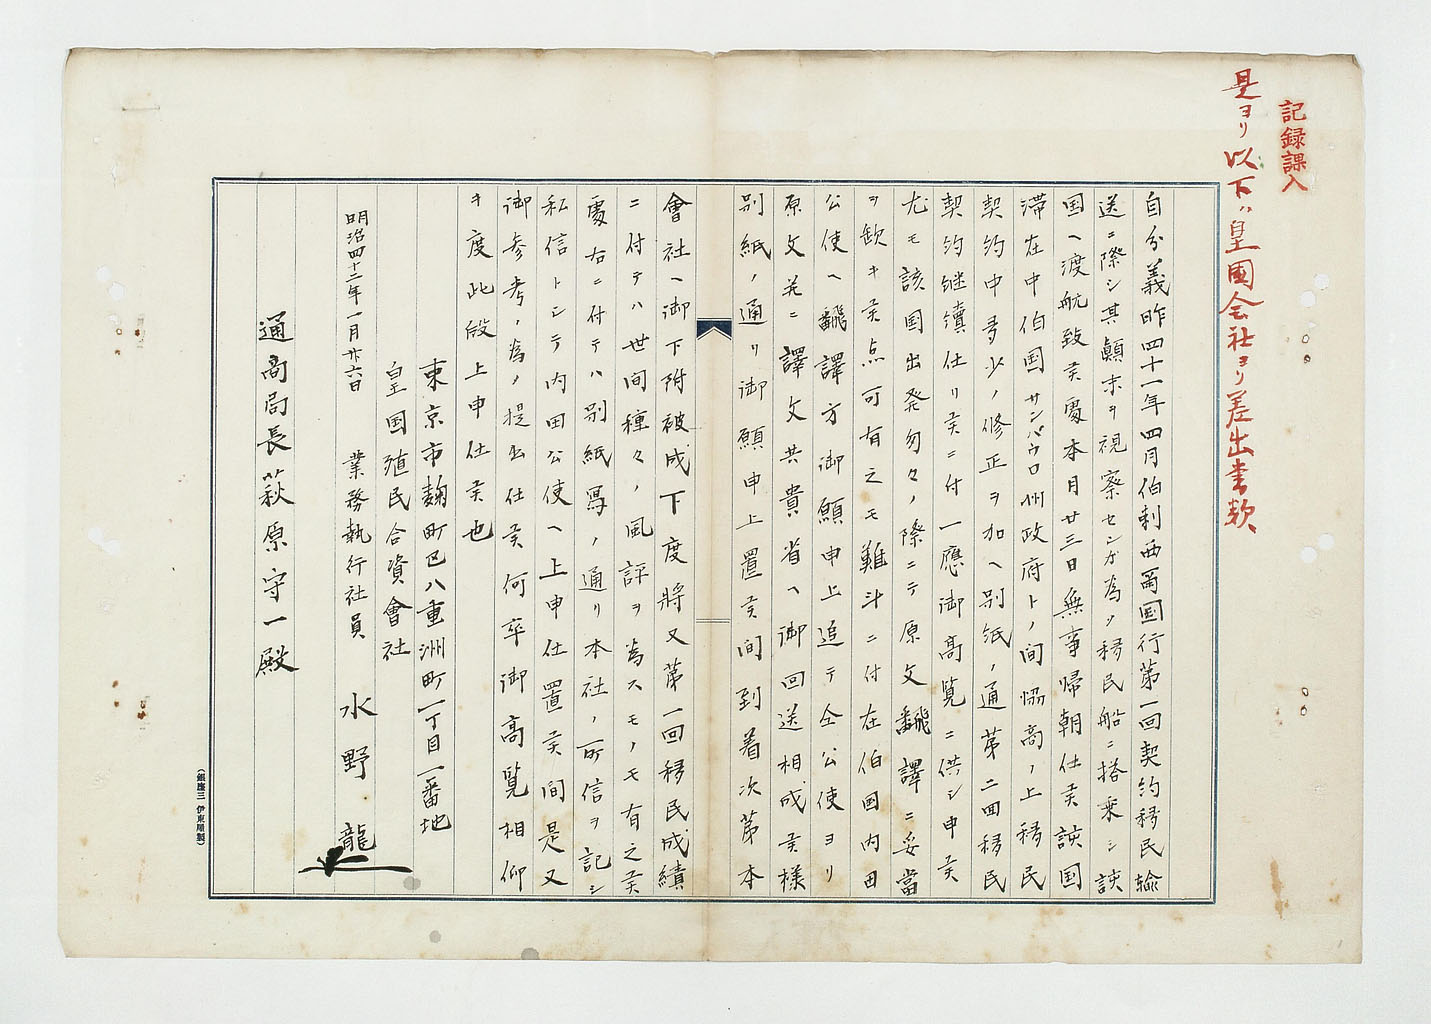 記録課入
是ヨリ以下ハ皇國会社ヨリ差出書款
自分義昨四十一年四月伯剌西爾国行第一回契約移民輸
送ニ際シ其顛末ヲ視察センガ為メ移民船ニ搭乗シ該
国ヘ渡航致候處本月廿三日無事帰朝仕候該国
滞在中伯国サンパウロ州政府トノ間協商ノ上移民
契約中多少ノ修正ヲ加ヘ別紙ノ通第二回移民
契約継續仕リ候ニ付一應御高覧ニ供シ申候
尤モ該国出発匆々ノ際ニテ原文飜譯ニ妥當
ヲ欽キ候点可有之モ難斗ニ付在伯国内田
公使ヘ飜譯方御願申上追テ仝公使ヨリ
原文并ニ譯文共貴省ヘ御回送相成候様
別紙ノ通リ御願申上置候間到着次第本
會社ヘ御下附被成下度將又第一回移民成績
ニ付テハ世间種々ノ風評ヲ為スモノモ有之候
處右ニ付テハ別紙寫ノ通リ本社ノ所信ヲ記シ
私信トシテ内田公使ヘ上申仕置候間是又
御参考ノ為メ提出仕候何卒御高覧相仰
キ度此段上申仕候也
東京市麹町区八重洲町一丁目一番地
皇国殖民合資會社
明治四十二年一月廿六日 業務執行社員 水野龍
通商局長萩原守一殿
(銀座三 伊東屋製)